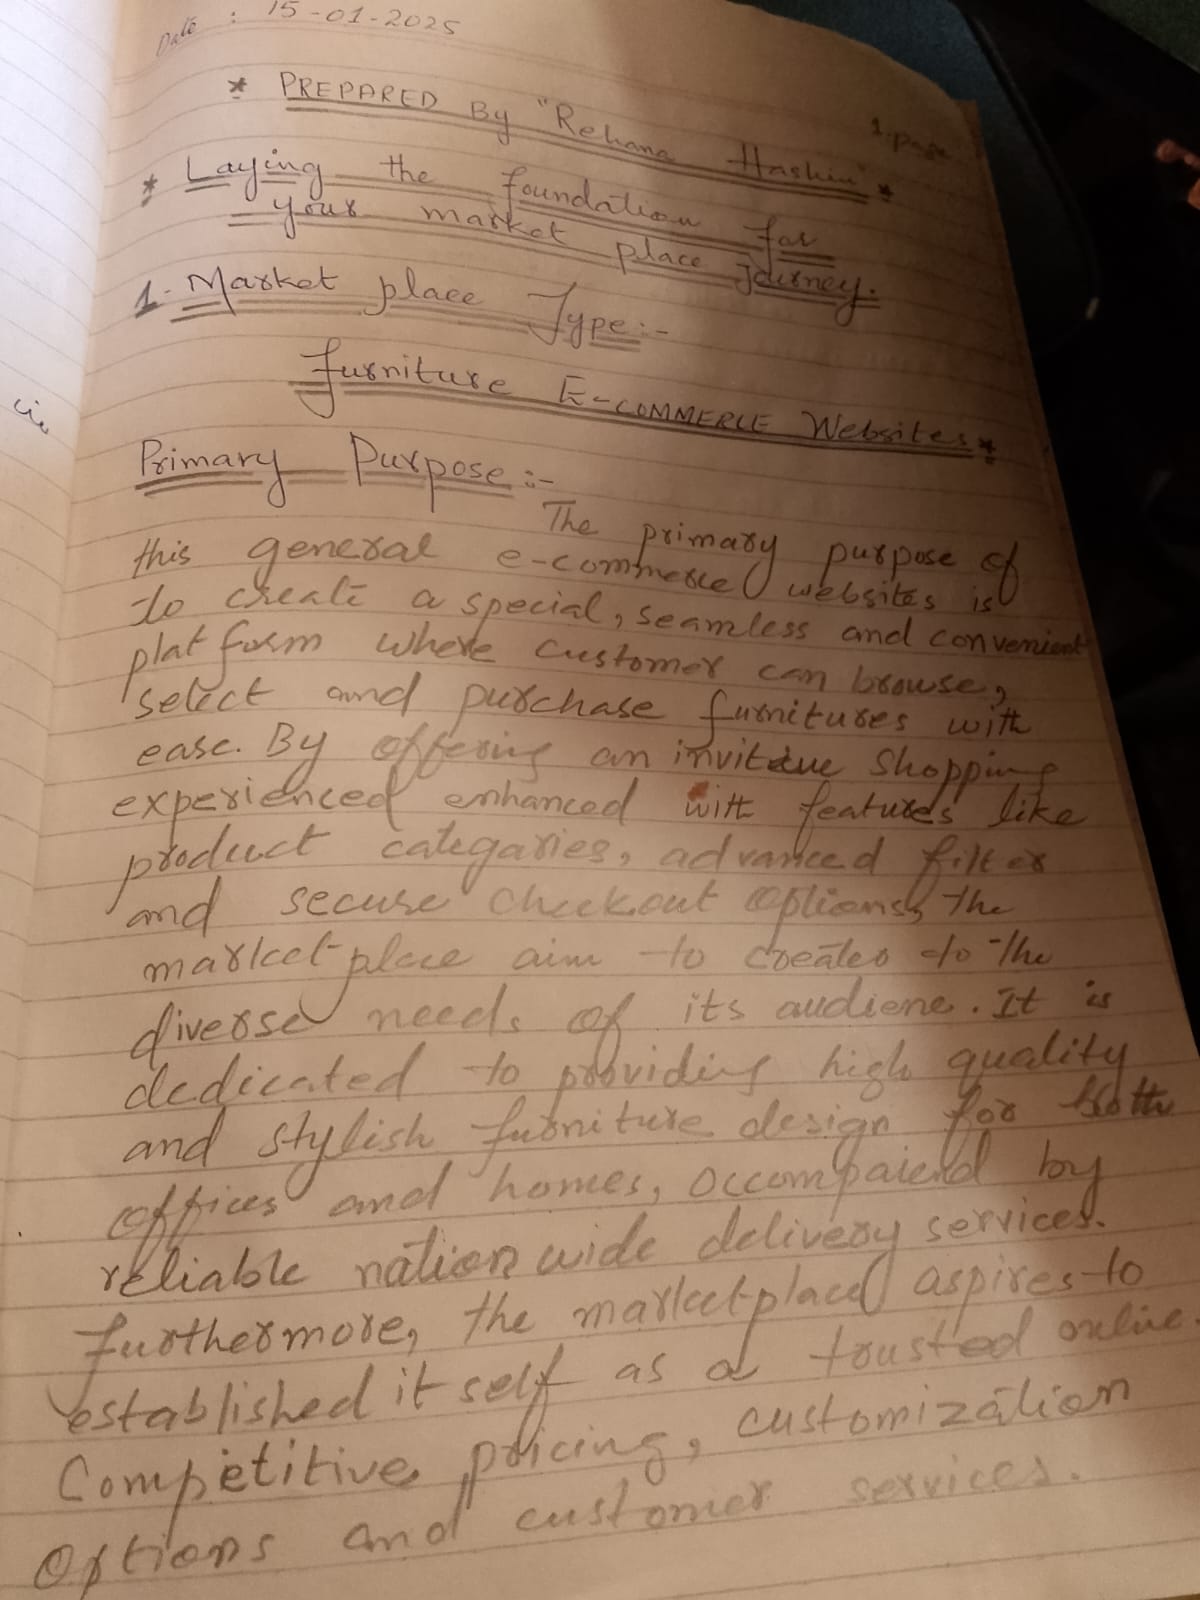 Date : 15-01-2025
1-page
* PREPARED By "Rehana Hashim" *
* Laying the foundation for
your market place Journey.
1- Market place Type:-
furniture E-COMMERCE Websites *
Primary Purpose :-
The primary purpose of
this general e-commerce websites is
to create a special, seamless and convenient
platform where customer can browse,
select and purchase furnitures with
ease. By offering an invitive shopping
experienced enhanced with features like
product categaries, advanced filter
and secure checkout options, the
marketplace aim to creates to the
diverse needs of its audiene. It is
dedicated to providing high quality
and stylish furniture design for both
offices and homes, occompaiend by
reliable nation wide delivery services.
furthermore, the marketplace aspires to
established it self as a trusted online
Competitive pricing, customization
options and customer services.